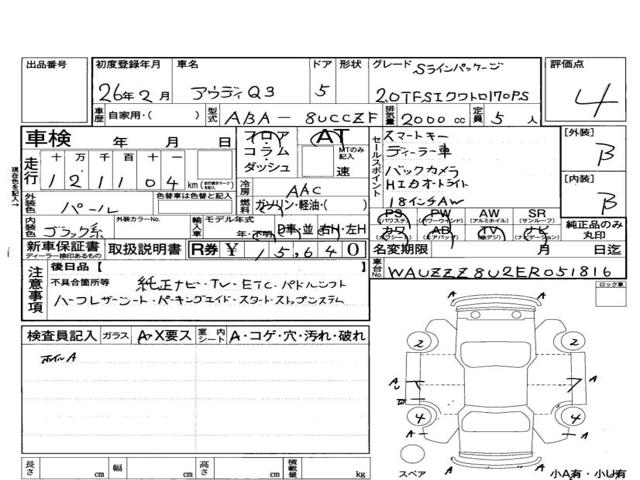 出品番号 初度登録年月 車名 ドア 形状 グレード Sラインパッケージ 評価点
26年2月 アウディQ3 5 2.0TFSIクワトロ170PS 4
車歴 自家用・( ) 型式 ABA-8UCCZF 排気量 2000cc 定員 5人
車検 年 月 日 フロア AT セールスポイント スマートキー [外装]
走行 十 万 千 百 十 一 コラム・ MTのみ記入 ディーラー車 B
1 2 1 1 0 4 km ダッシュ 速 バックカメラ [内装]
現在色を記入→ HIDオートライト B
外装色 パール 色替車は色替と記入 冷房 AAC 18インチAW
燃料 ガソリン・軽油・( )
内装色 ブラック系 外装カラーNo. 輸入車 モデル年式 年・不明 D車・並 右H・左H
PS (パワステ) PW (パワーウインド) AW (アルミホイル) SR (サンルーフ) 純正品のみ丸印
カワ AB TV ナビ
新車保証書 ディーラー捺印あるもの 取扱説明書 R券 ¥ 15,640 名変期限 月 日迄
注意事項 後日品【 】 車台No. WAUZZZ8U2ER051816
不具合箇所等 純正ナビ・TV・ETC・パドルシフト
ハーフレザーシート・パーキングエイド・スタートストップシステム
ロック車
検査員記入 ガラス A・X要ス 室内シート A・コゲ・穴・汚れ・破れ
ホイルA
A
2 2
A A
AU
W
4 4
A A
スペア A
長さ cm 幅 cm 高さ cm 積載量 kg 小A有・小U有